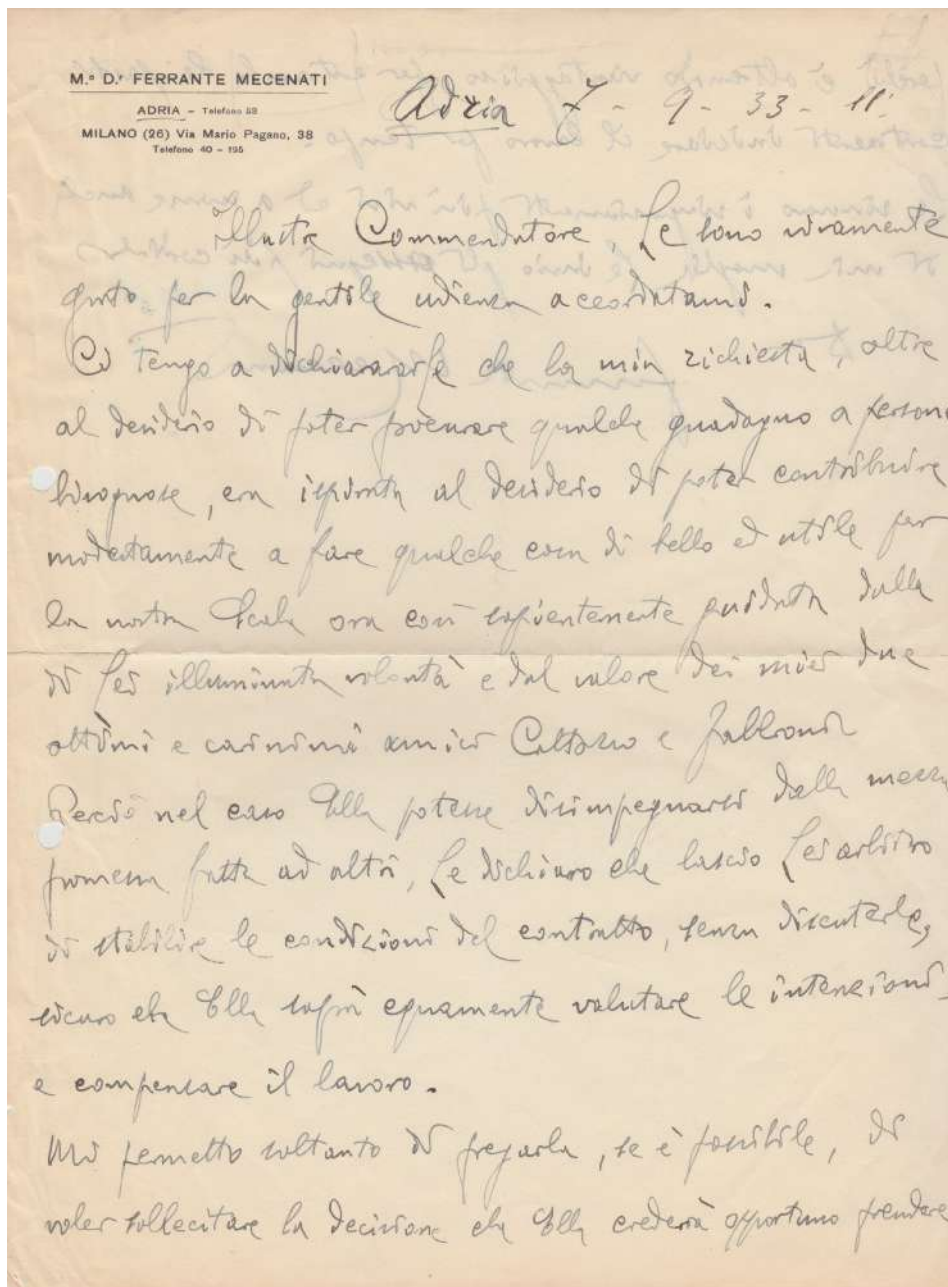 M.º D.r FERRANTE MECENATI
ADRIA – Telefono 52
MILANO (26) Via Mario Pagano, 38
Telefono 40 – 195
Adria 7 - 9 - 33 - 11.
Illustre Commendatore, Le sono vivamente
grato per la gentile udienza accordatami.
Ci tengo a dichiararLe che la mia richiesta, oltre
al desiderio di poter procurare qualche guadagno a persone
bisognose, era ispirata al desiderio di poter contribuire
modestamente a fare qualche cosa di bello ed utile per
la nostra Scala ora così sapientemente guidata dalla
di Lei illuminata volontà e dal valore dei miei due
ottimi e carissimi amici e Fabbroni
Perciò nel caso Ella potesse disimpegnarsi dalla mezza
promessa fatta ad altri, Le dichiaro che lascio Lei arbitro
di stabilire le condizioni del contratto, senza discuterle,
sicuro che Ella saprà equamente valutare le intenzioni
e compensare il lavoro.
Mi permetto soltanto di pregarla, se è possibile, di
voler sollecitare la decisione che Ella crederà opportuno prendere